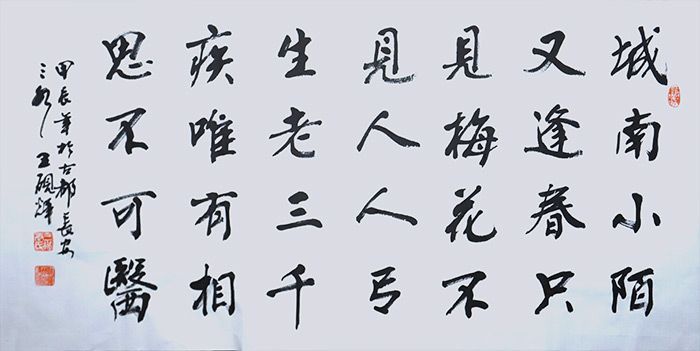 城南小陌
又逢春只
見梅花不
見人人有
生老三千
疾唯有相
思不可醫
甲辰年於古都長安
王硯輝